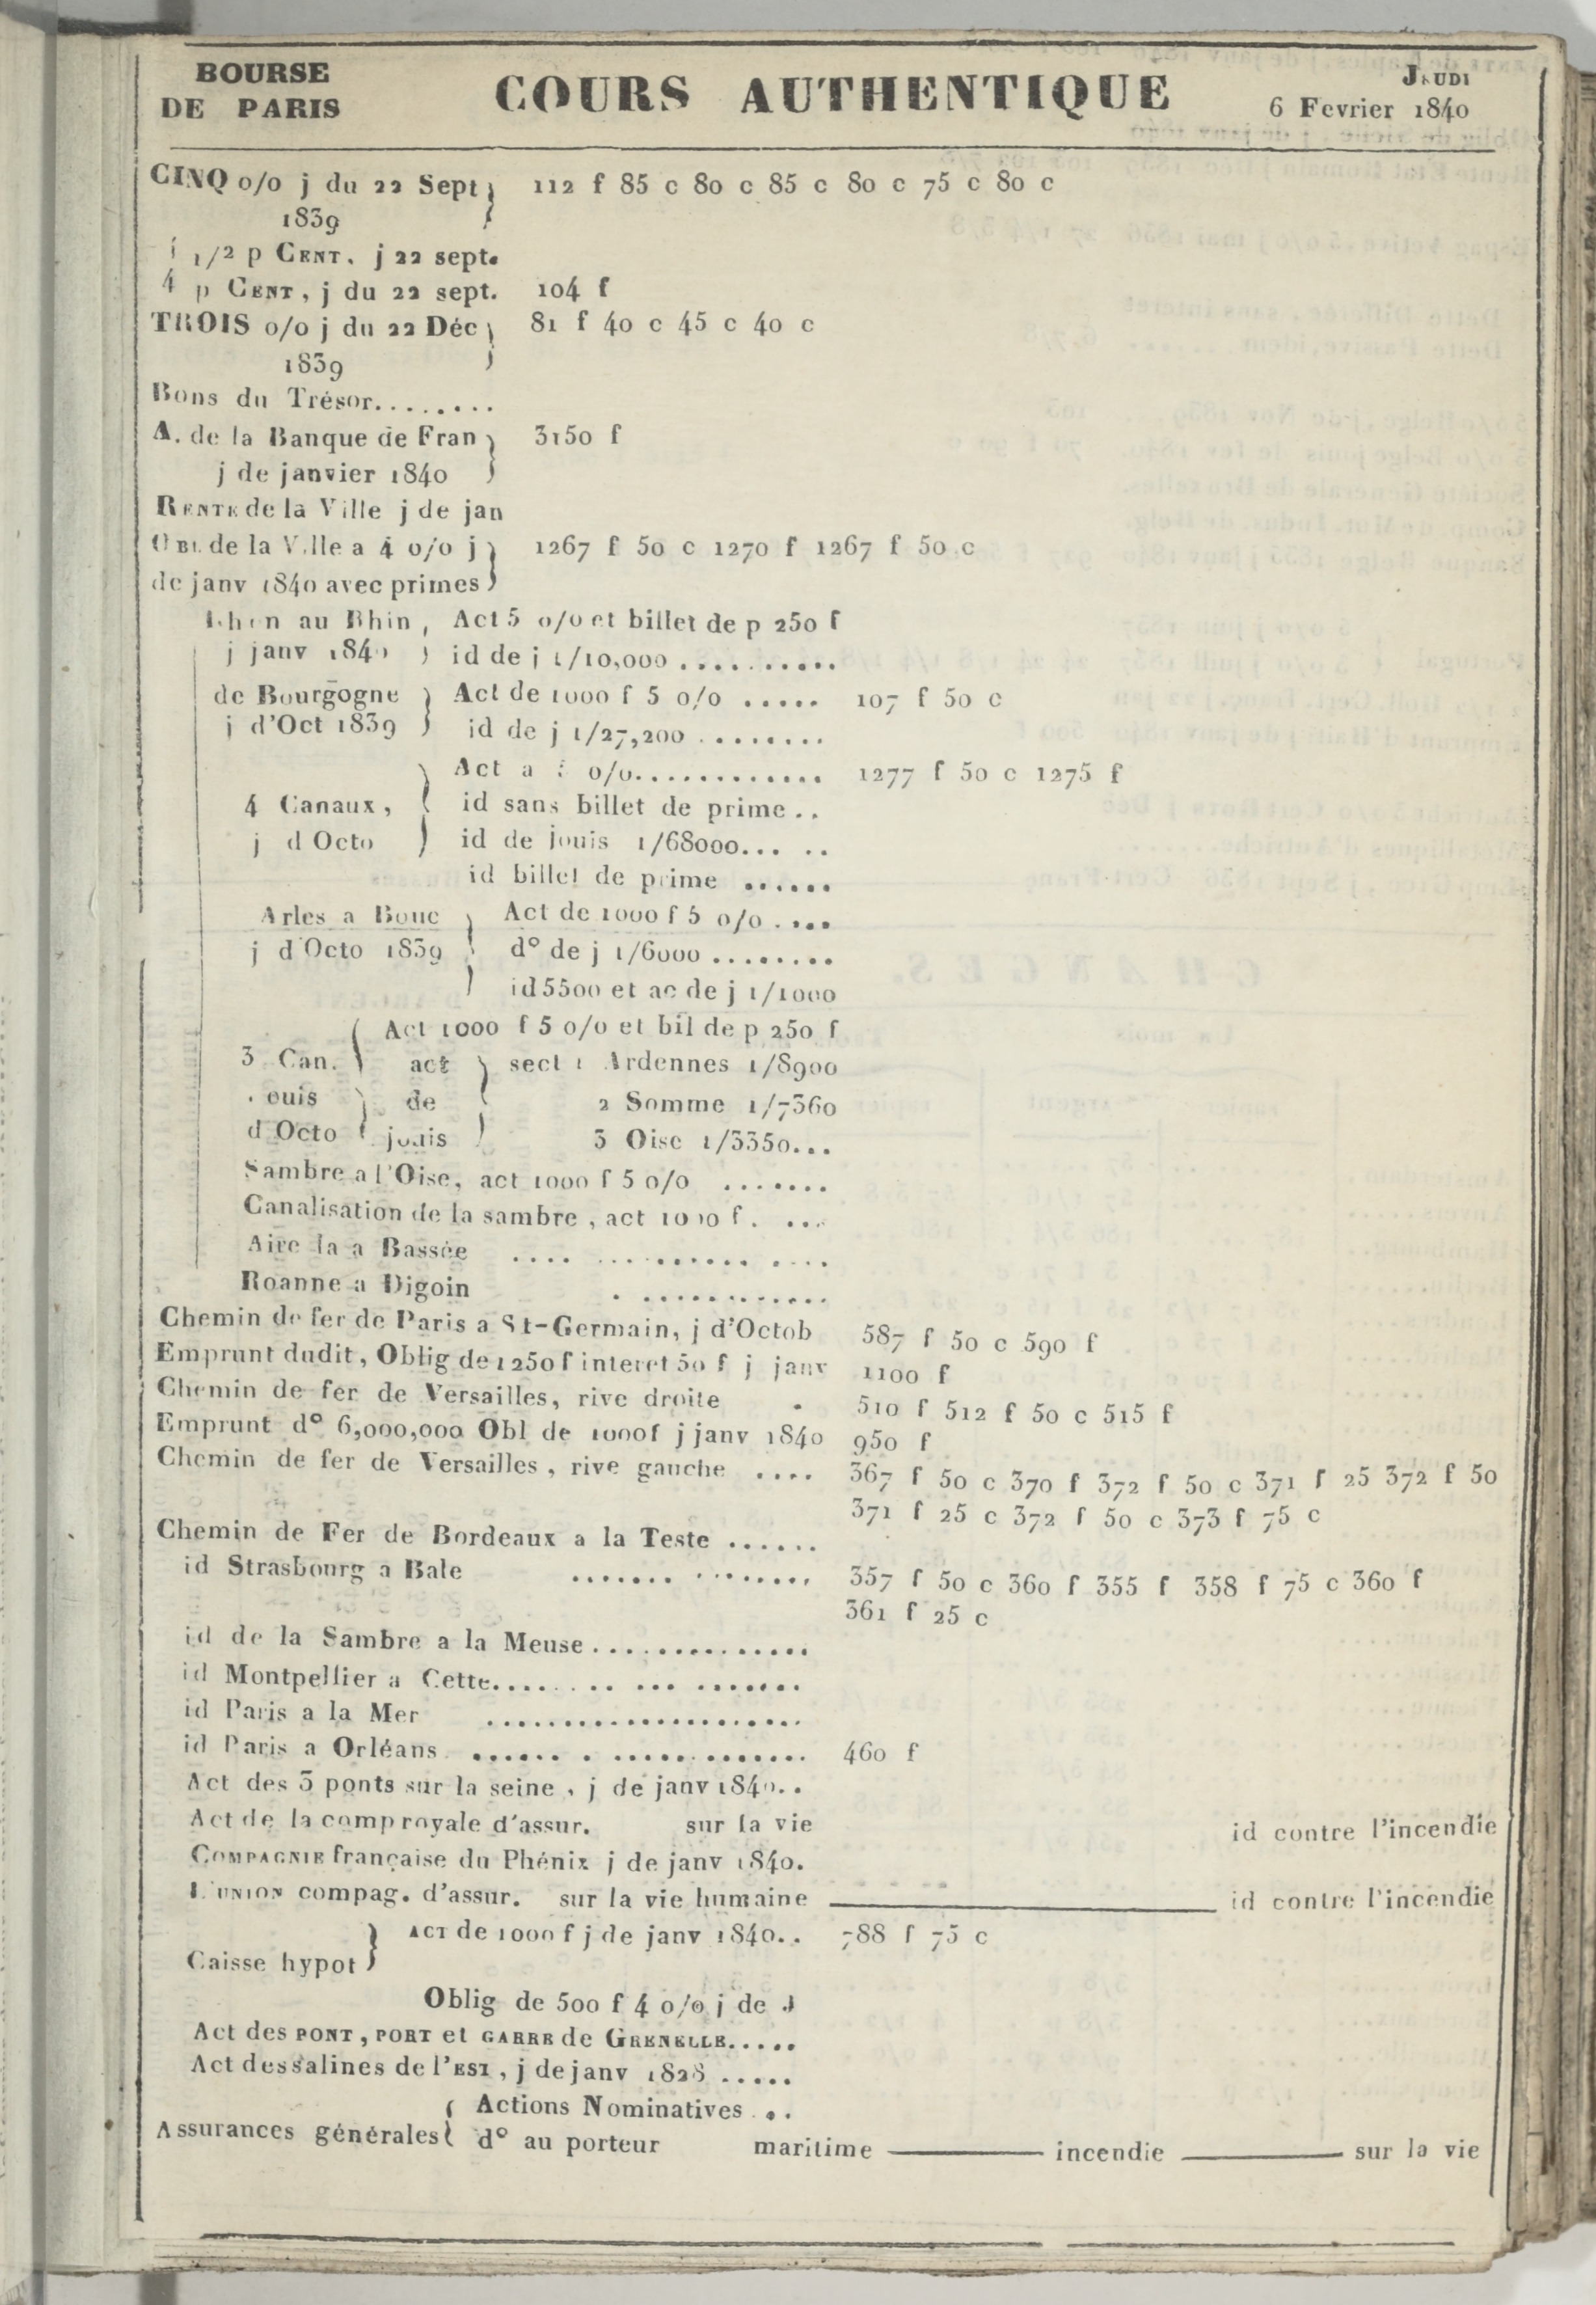 BOURSE
DE PARIS
COURS AUTHENTIQUE
JEUDI
6 Fevrier 1840
CINQ o/o j du 22 Sept 112 f 85 c 80 c 85 c 80 c 75 c 80 c
1839
1/2 p CENT. j 22 sept.
4 p CENT, j du 22 sept. 104 f
TROIS o/o j du 22 Déc 81 f 40 c 45 c 40 c
1839
Bons du Trésor........
A. de la Banque de Fran 3150 f
j de janvier 1840
RENTE de la Ville j de jan
OBL de la Ville a 4 o/o j 1267 f 50 c 1270 f 1267 f 50 c
de janv 1840 avec primes
au Rhin, Act 5 o/o et billet de p 250 f
j janv 1840 id de j 1/10,000 ..........
de Bourgogne Act de 1000 f 5 o/o ..... 107 f 50 c
j d'Oct 1839 id de j 1/27,200 ........
Act a o/o............ 1277 f 50 c 1275 f
4 Canaux, id sans billet de prime..
j d Octo id de jouis 1/68000... ..
id billet de prime ......
Arles a Bouc Act de 1000 f 5 o/o ....
j d'Octo 1839 d° de j 1/6000 ........
id 5500 et ac de j 1/1000
Act 1000 f 5 o/o et bil de p 250 f
3 Can. act sect 1 Ardennes 1/8900
ouis de 2 Somme 1/7360
d Octo jouis 3 Oise 1/3350...
Sambre a l'Oise, act 1000 f 5 o/o .......
Canalisation de la sambre, act 1000 f. ...
Aire la a Bassée .... .......... ....
Roanne a Digoin . ............
Chemin de fer de Paris a St-Germain, j d'Octob 587 f 50 c 590 f
Emprunt dudit, Oblig de 1250 f interet 50 f j janv 1100 f
Chemin de fer de Versailles, rive droite . 510 f 512 f 50 c 515 f
Emprunt d° 6,000,000 Obl de 1000f j janv 1840 950 f
Chemin de fer de Versailles, rive gauche .... 367 f 50 c 370 f 372 f 50 c 371 f 25 372 f 50
371 f 25 c 372 f 50 c 373 f 75 c
Chemin de Fer de Bordeaux a la Teste ......
id Strasbourg a Bale ....... ........ 357 f 50 c 360 f 355 f 358 f 75 c 360 f
361 f 25 c
id de la Sambre a la Meuse..............
id Montpellier a Cette.... .. ... .......
id Paris a la Mer .....................
id Paris a Orléans. ...... . ............. 460 f
Act des 3 ponts sur la seine, j de janv 1840..
Act de la comp royale d'assur. sur la vie id contre l'incendie
COMPAGNIE française du Phénix j de janv 1840.
L'UNION compag. d'assur. sur la vie humaine id contre l'incendie
ACT de 1000 f j de janv 1840.. 788 f 75 c
Caisse hypot
Oblig de 500 f 4 o/o j de J
Act des PONT, PORT et GARRE de GRENELLE.....
Act des salines de l'EST, j de janv 1828 .....
Actions Nominatives ...
Assurances générales d° au porteur maritime incendie sur la vie